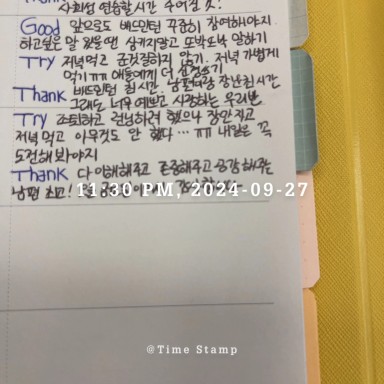 사회성 연습할 시간 주어질 것!
Good 앞으로도 배드민턴 꾸준히 참여해야지
하고싶은 말 있을땐 삼키지말고 또박또박 말하기
Try 저녁먹고 군것질하지 않기. 저녁 가볍게
먹기ㅠㅠ 애들에게 더
Thank 배드민턴 쉬는시간, 남편이랑 장난친 시간
그래도 너무 예쁘고 사랑하는 우리반
Try 조퇴하고 려 했으나 잠만 자고
저녁 먹고 아무것도 안 했다... ㅠㅠ 내일은 꼭
도전해봐야지
Thank 다 이해해주고 존중해주고 공감해주는
남편 최고!
11:30 PM, 2024-09-27
@Time Stamp